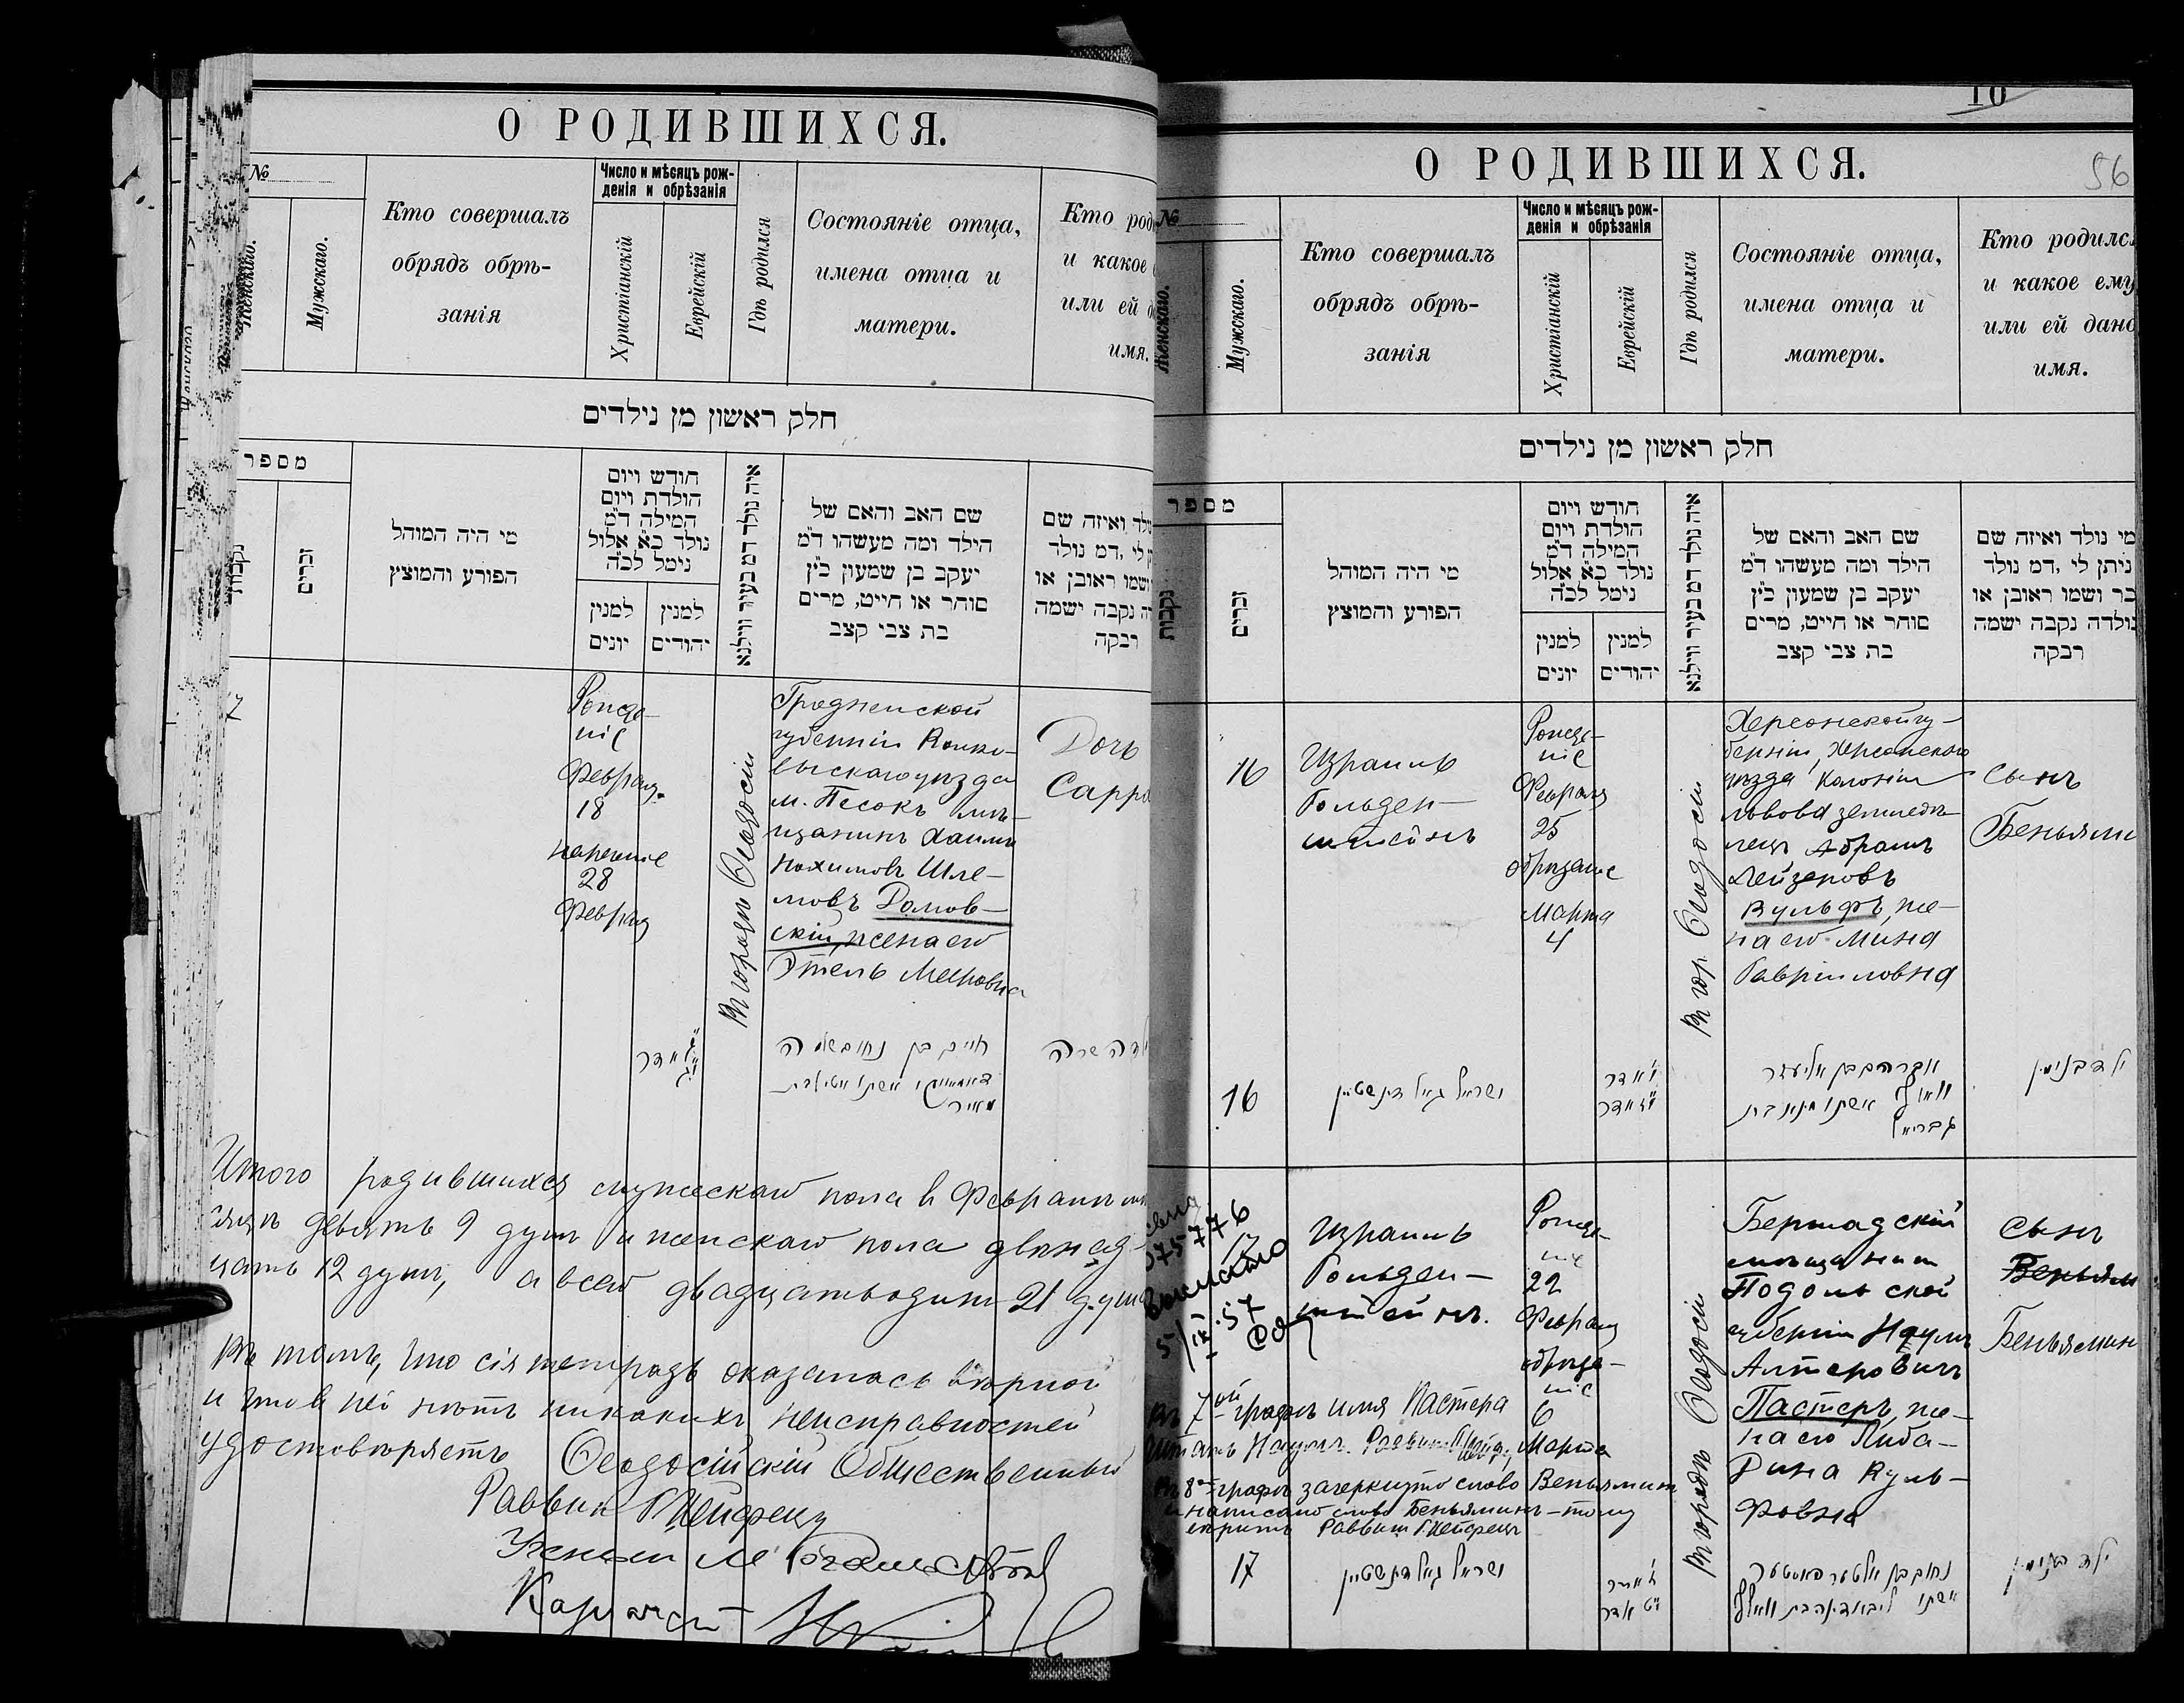 О РОДИВШИХСЯ.
№
Женскаго.
Мужскаго.
Кто совершалъ
обрядъ обрѣ-
занія
Число и мѣсяцъ рож-
денія и обрѣзанія
Христіанскій
Еврейскій
Гдѣ родился
Состояніе отца,
имена отца и
матери.
Кто род
и какое
или ей
имя.
חלק ראשון מן נילדים
מספר
נקבות
זכרים
מי היה המוהל
הפורע והמוצץ
חודש ויום
הולדת ויום
המילה ד״מ
נולד כ״א אלול
נימל לכ״ה
למנין
יונים
למנין
יהודים
איה נולד דמ בעיר ווילנא
שם האב והאם של
הילד ומה מעשהו ד״מ
יעקב בן שמעון כ״ץ
סוחר או חייט, מרים
בת צבי קצב
ולד ואיזה שם
לי ,דמ נולד
ושמו ראובן או
ה נקבה ישמה
רבקה
7
Рожде-
ніе
Февраля
18
наречение
28
Февраля
Въ городѣ Ѳеодосіи
Гродненской
губерніи Волко-
выскаго уѣзда
м. Песокъ мѣ-
щанинъ Хаимъ
Нохимовъ Шле-
мовъ Домов-
скій, жена его
Этель Меировна
Дочь
Сарра
אדר
חיים בן נחום שלמה
אשתו עטיל בת
מאיר
ילדה שרה
Итого родившихся мужскаго пола в Февралѣ мѣ-
сяцѣ девять 9 душ и женскаго пола двѣнад-
цать 12 душъ, а всего двадцать один 21 душа
Въ томъ, что сія тетрадь оказалась вѣрной
и что в ней нѣтъ никакихъ неисправностей
удостовѣряетъ Ѳеодосійскій Общественный
Раввин Г. Цейфецъ
О РОДИВШИХСЯ.
10
56
№
Женскаго.
Мужскаго.
Кто совершалъ
обрядъ обрѣ-
занія
Число и мѣсяцъ рож-
денія и обрѣзанія
Христіанскій
Еврейскій
Гдѣ родился
Состояніе отца,
имена отца и
матери.
Кто родился
и какое ему
или ей дано
имя.
חלק ראשון מן נילדים
מספר
נקבות
זכרים
מי היה המוהל
הפורע והמוצץ
חודש ויום
הולדת ויום
המילה ד״מ
נולד כ״א אלול
נימל לכ״ה
למנין
יונים
למנין
יהודים
איה נולד דמ בעיר ווילנא
שם האב והאם של
הילד ומה מעשהו ד״מ
יעקב בן שמעון כ״ץ
סוחר או חייט, מרים
בת צבי קצב
מי נולד ואיזה שם
ניתן לי ,דמ נולד
בר ושמו ראובן או
נולדה נקבה ישמה
רבקה
16
Израиль
Гольден-
штейнъ
Рожде-
ніе
Февраля
25
обрѣзаніе
Марта
4
Въ гор Ѳеодосіи
Херсонской гу-
берніи, Херсонскаго
уѣзда колоніи
Львова земледѣ-
лецъ Абрамъ
Лейзеровъ
Вульфъ, же-
на его Мина
Гавриловна
сынъ
Беньями
16
ישראל גאלדענשטיין
אדר
אדר
אברהם בן אליעזר
וואולף אשתו מינא בת
גבריאל
ילד בנימין
17
Израиль
Гольден-
штейнъ.
Рожде-
ніе
22
Февраля
обрѣза-
ніе
6
Марта
Въ городѣ Ѳеодосіи
Бершадскій
мѣщанинъ
Подольской
губерніи Наумъ
Алтеровичъ
Пастеръ, же-
на его Либа-
Дина Вуль-
фовна
сынъ
Веньям
Беньямин
57
Въ 7ой графѣ имя Пастера
читать Наумъ. Раввин Г. Цейф,
Въ 8ой графѣ зачеркнуто слово Веньямин
и написано слово Беньяминъ – тому
вѣрить Раввин Г. Цейфецъ
17
ישראל גאלדענשטיין
אדר
אדר
נחום בן אלטער פאסטער
אשתו ליבא דינה בת וואולף
ילד בנימין